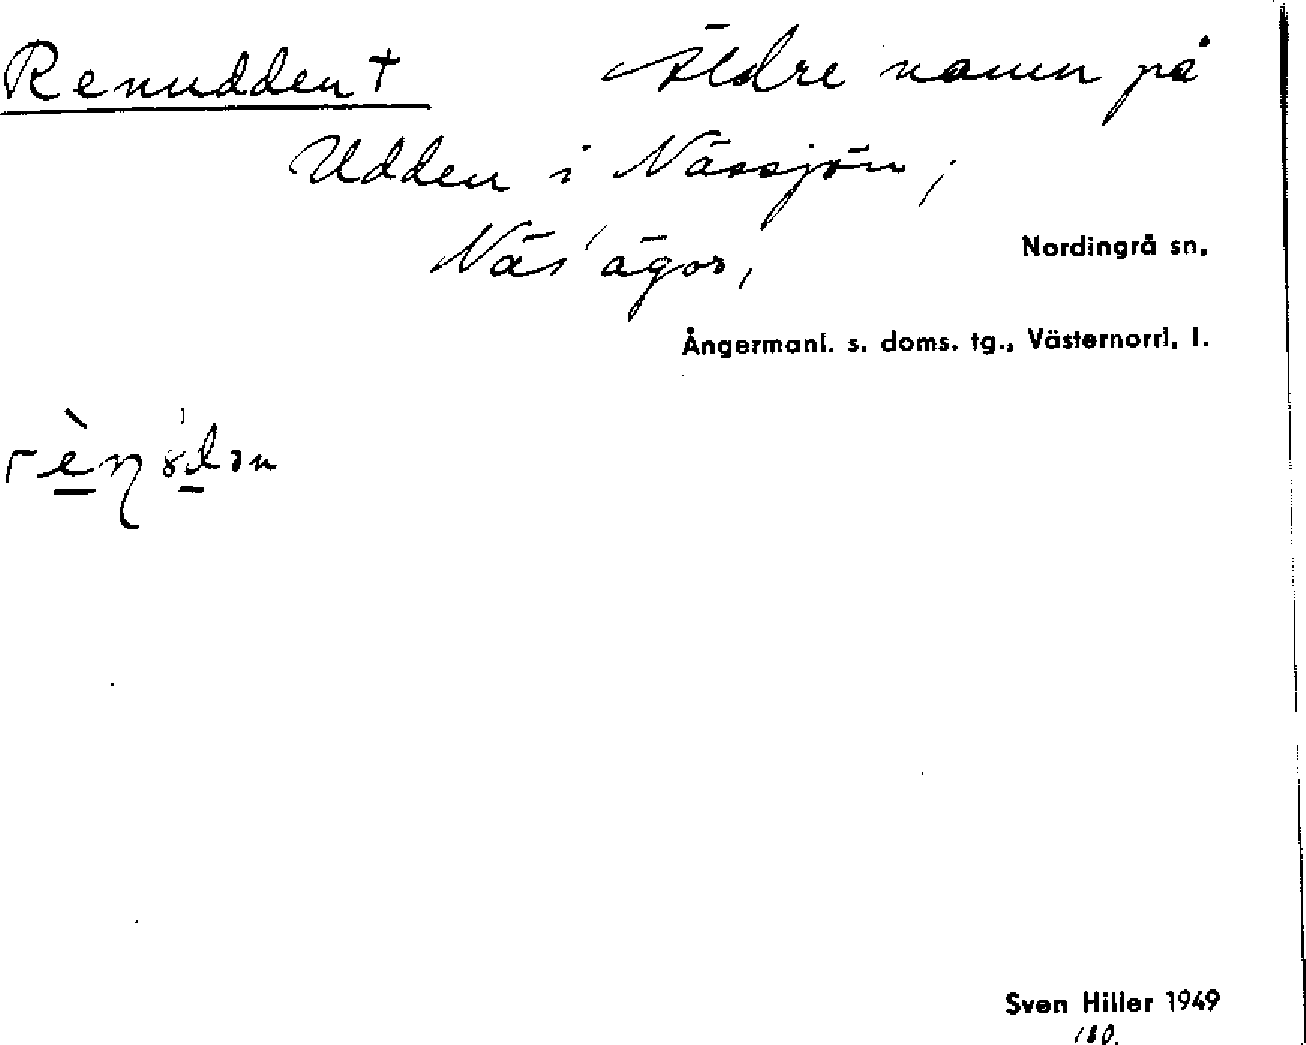 Renudden † Äldre namn på
Udden i Nässjön,
Näs' ägor,
Nordingrå sn,
Ångermanl. s. doms. tg., Västernorrl. l.
Sven Hiller 1949
180.